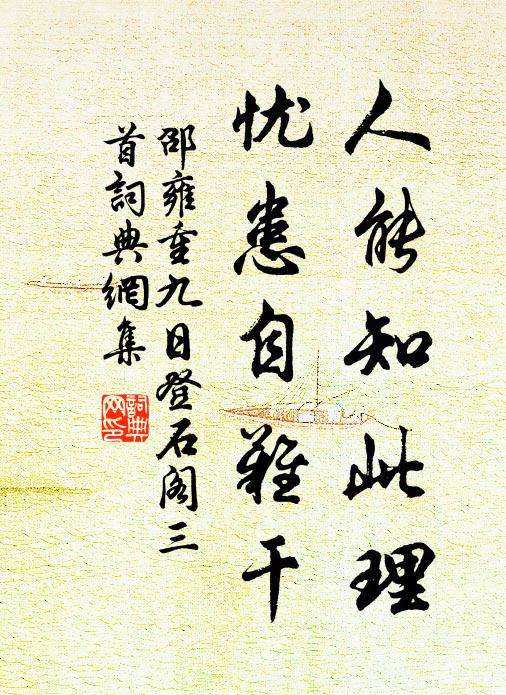 人能知此理
忧患自难干
邵雍重九日登石阁三
首詞典網集
詞典
网印